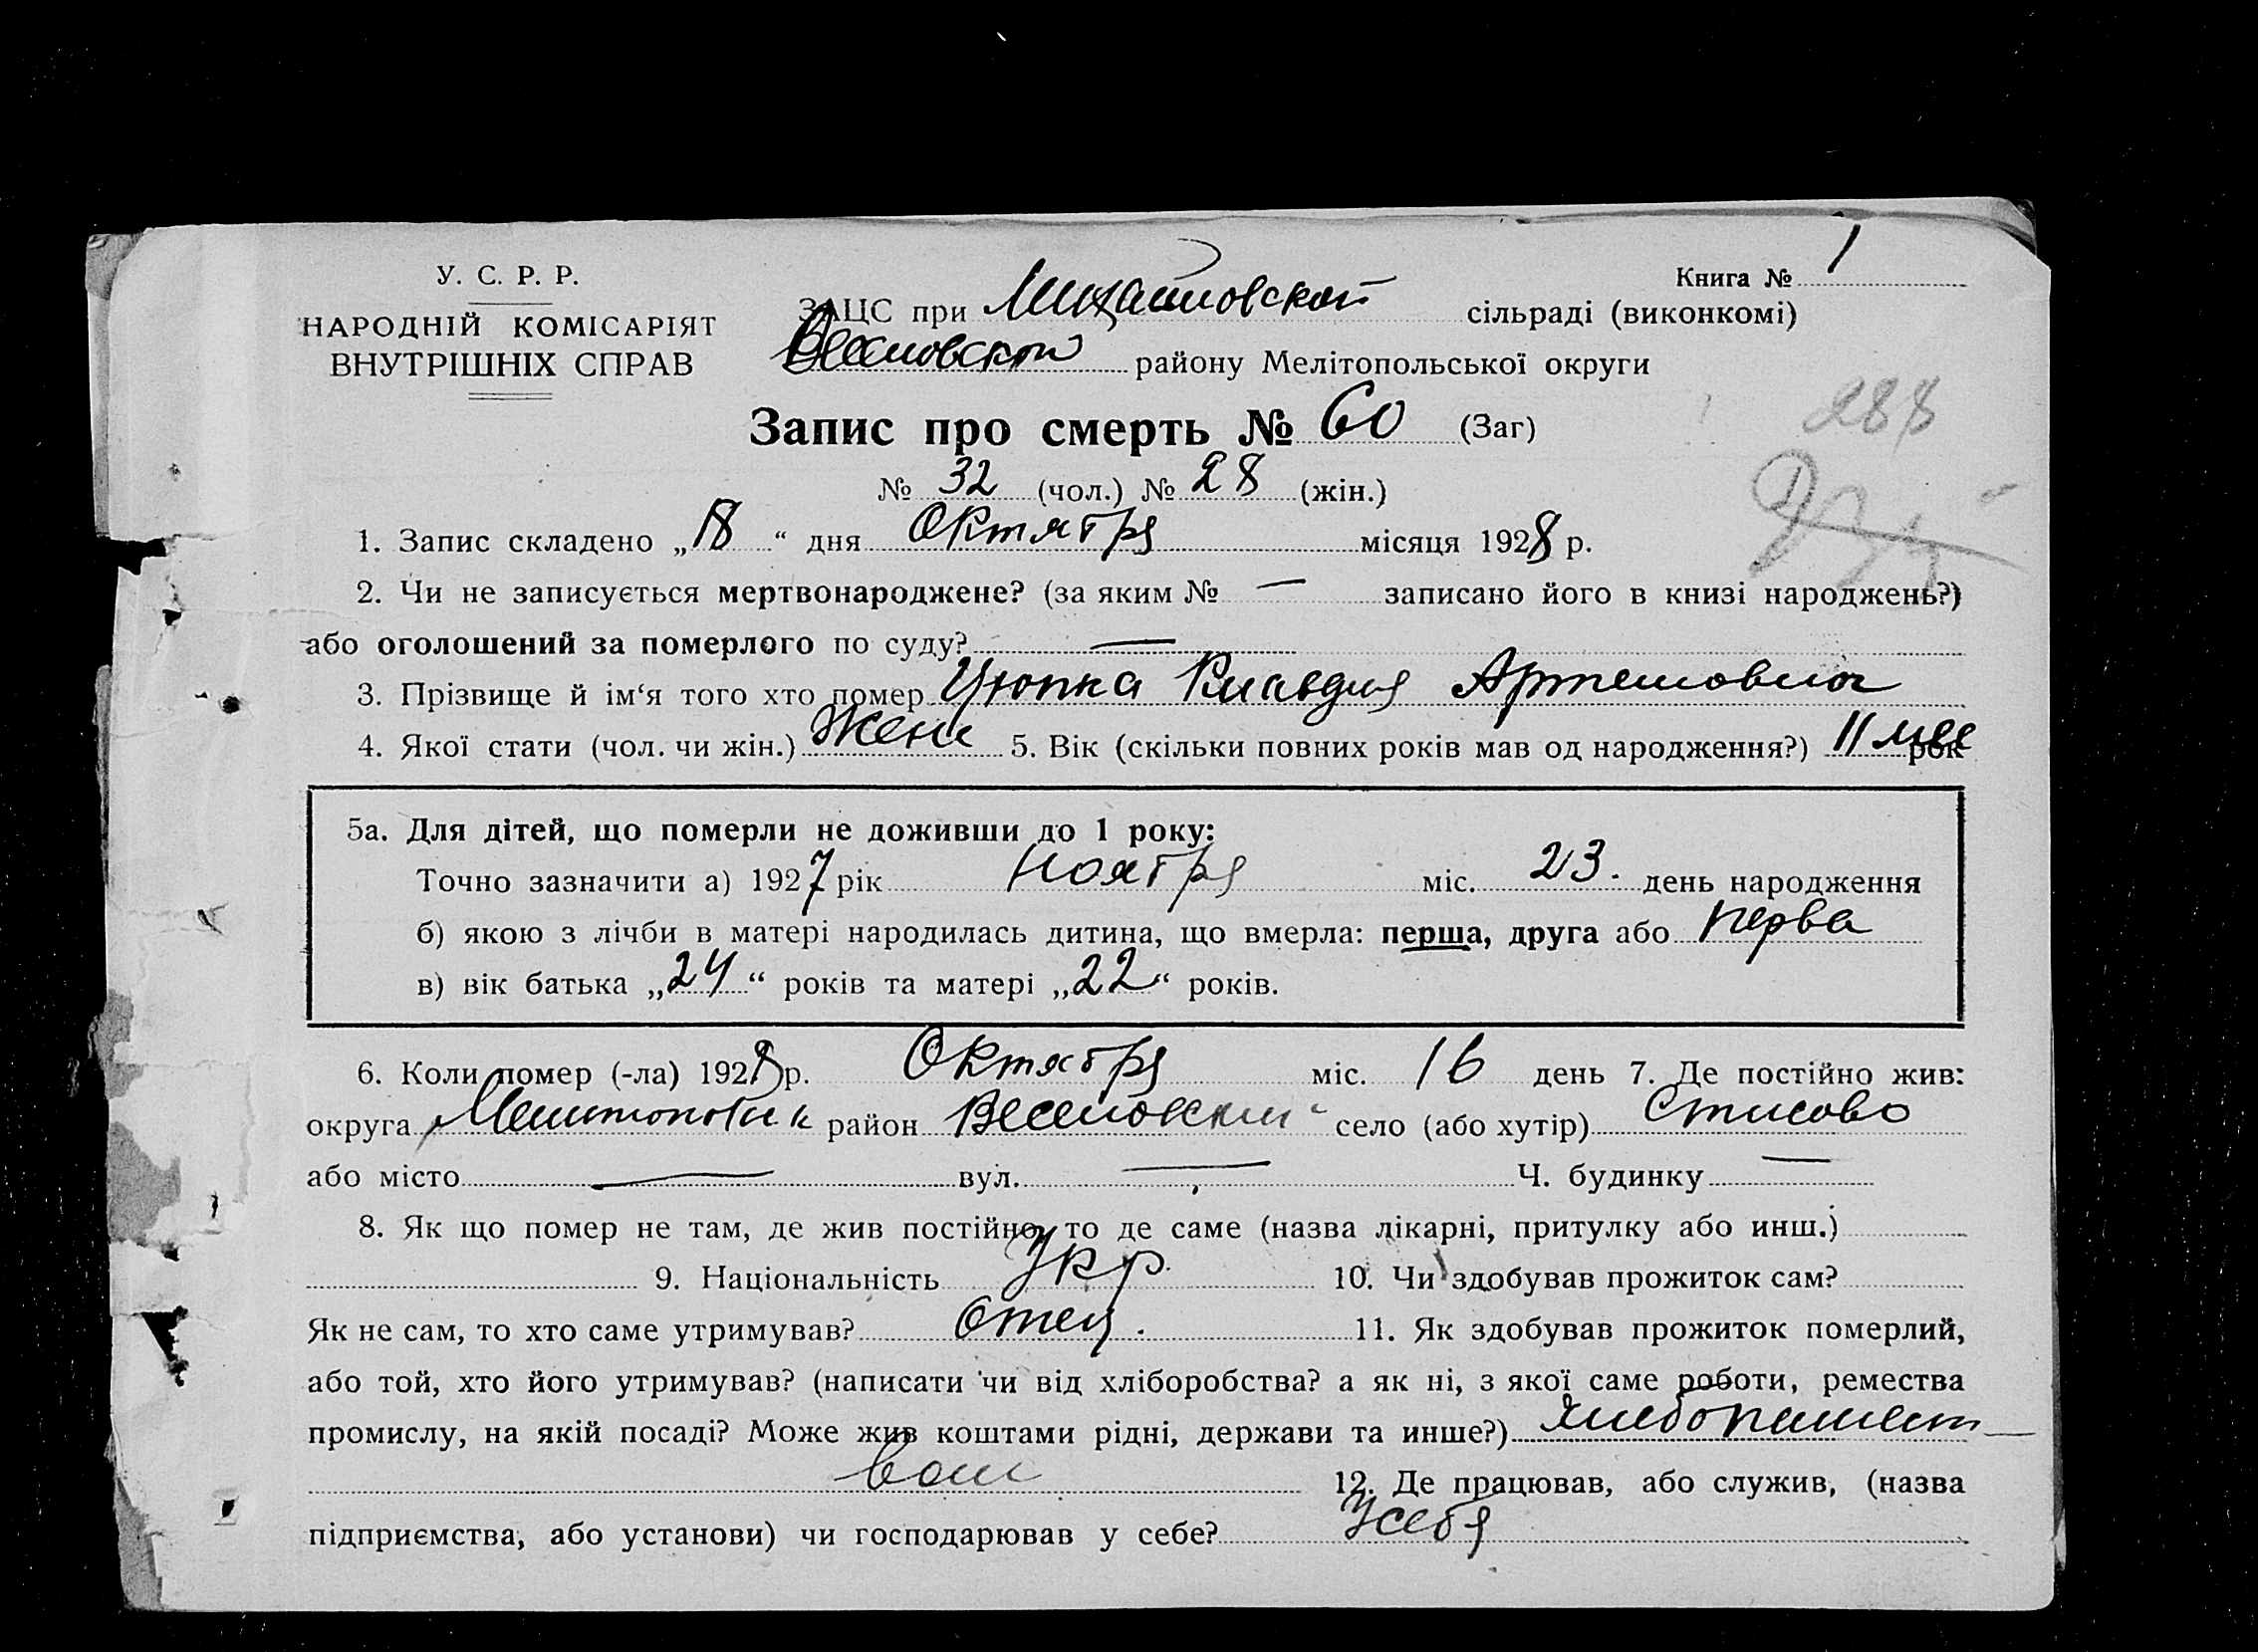 У. С. Р. Р.
НАРОДНІЙ КОМІСАРІЯТ
ВНУТРІШНІХ СПРАВ
Книга № 1
ЗАЦС при Михайловской сільраді (виконкомі)
Веселовской району Мелітопольської округи
288
Запис про смерть № 60 (Заг)
№ 32 (чол.) № 28 (жін.)
1. Запис складено „18“ дня Октября місяця 1928 р.
2. Чи не записується мертвонароджене? (за яким № — записано його в книзі народжень?)
або оголошений за померлого по суду? —
3. Прізвище й ім‘я того хто помер Цюпка Клавдия Артемовна
4. Якої стати (чол. чи жін.) Женс 5. Вік (скільки повних років мав од народження?) 11 мес рок
5а. Для дітей, що померли не доживши до 1 року:
Точно зазначити а) 1927 рік Ноября міс. 23. день народження
б) якою з лічби в матері народилась дитина, що вмерла: перша, друга або перва
в) вік батька „24“ років та матері „22“ років.
6. Коли помер (-ла) 1928 р. Октября міс. 16 день 7. Де постійно жив:
округа район Веселовский село (або хутір)
або місто — вул. — Ч. будинку —
8. Як що помер не там, де жив постійно, то де саме (назва лікарні, притулку або инш.)
9. Національність Укр. 10. Чи здобував прожиток сам?
Як не сам, то хто саме утримував? Отец. 11. Як здобував прожиток померлий,
або той, хто його утримував? (написати чи від хліборобства? а як ні, з якої саме роботи, ремества
промислу, на якій посаді? Може жив коштами рідні, держави та инше?) хлебопашест—
вом
12. Де працював, або служив, (назва
підприємства, або установи) чи господарював у себе? У себя